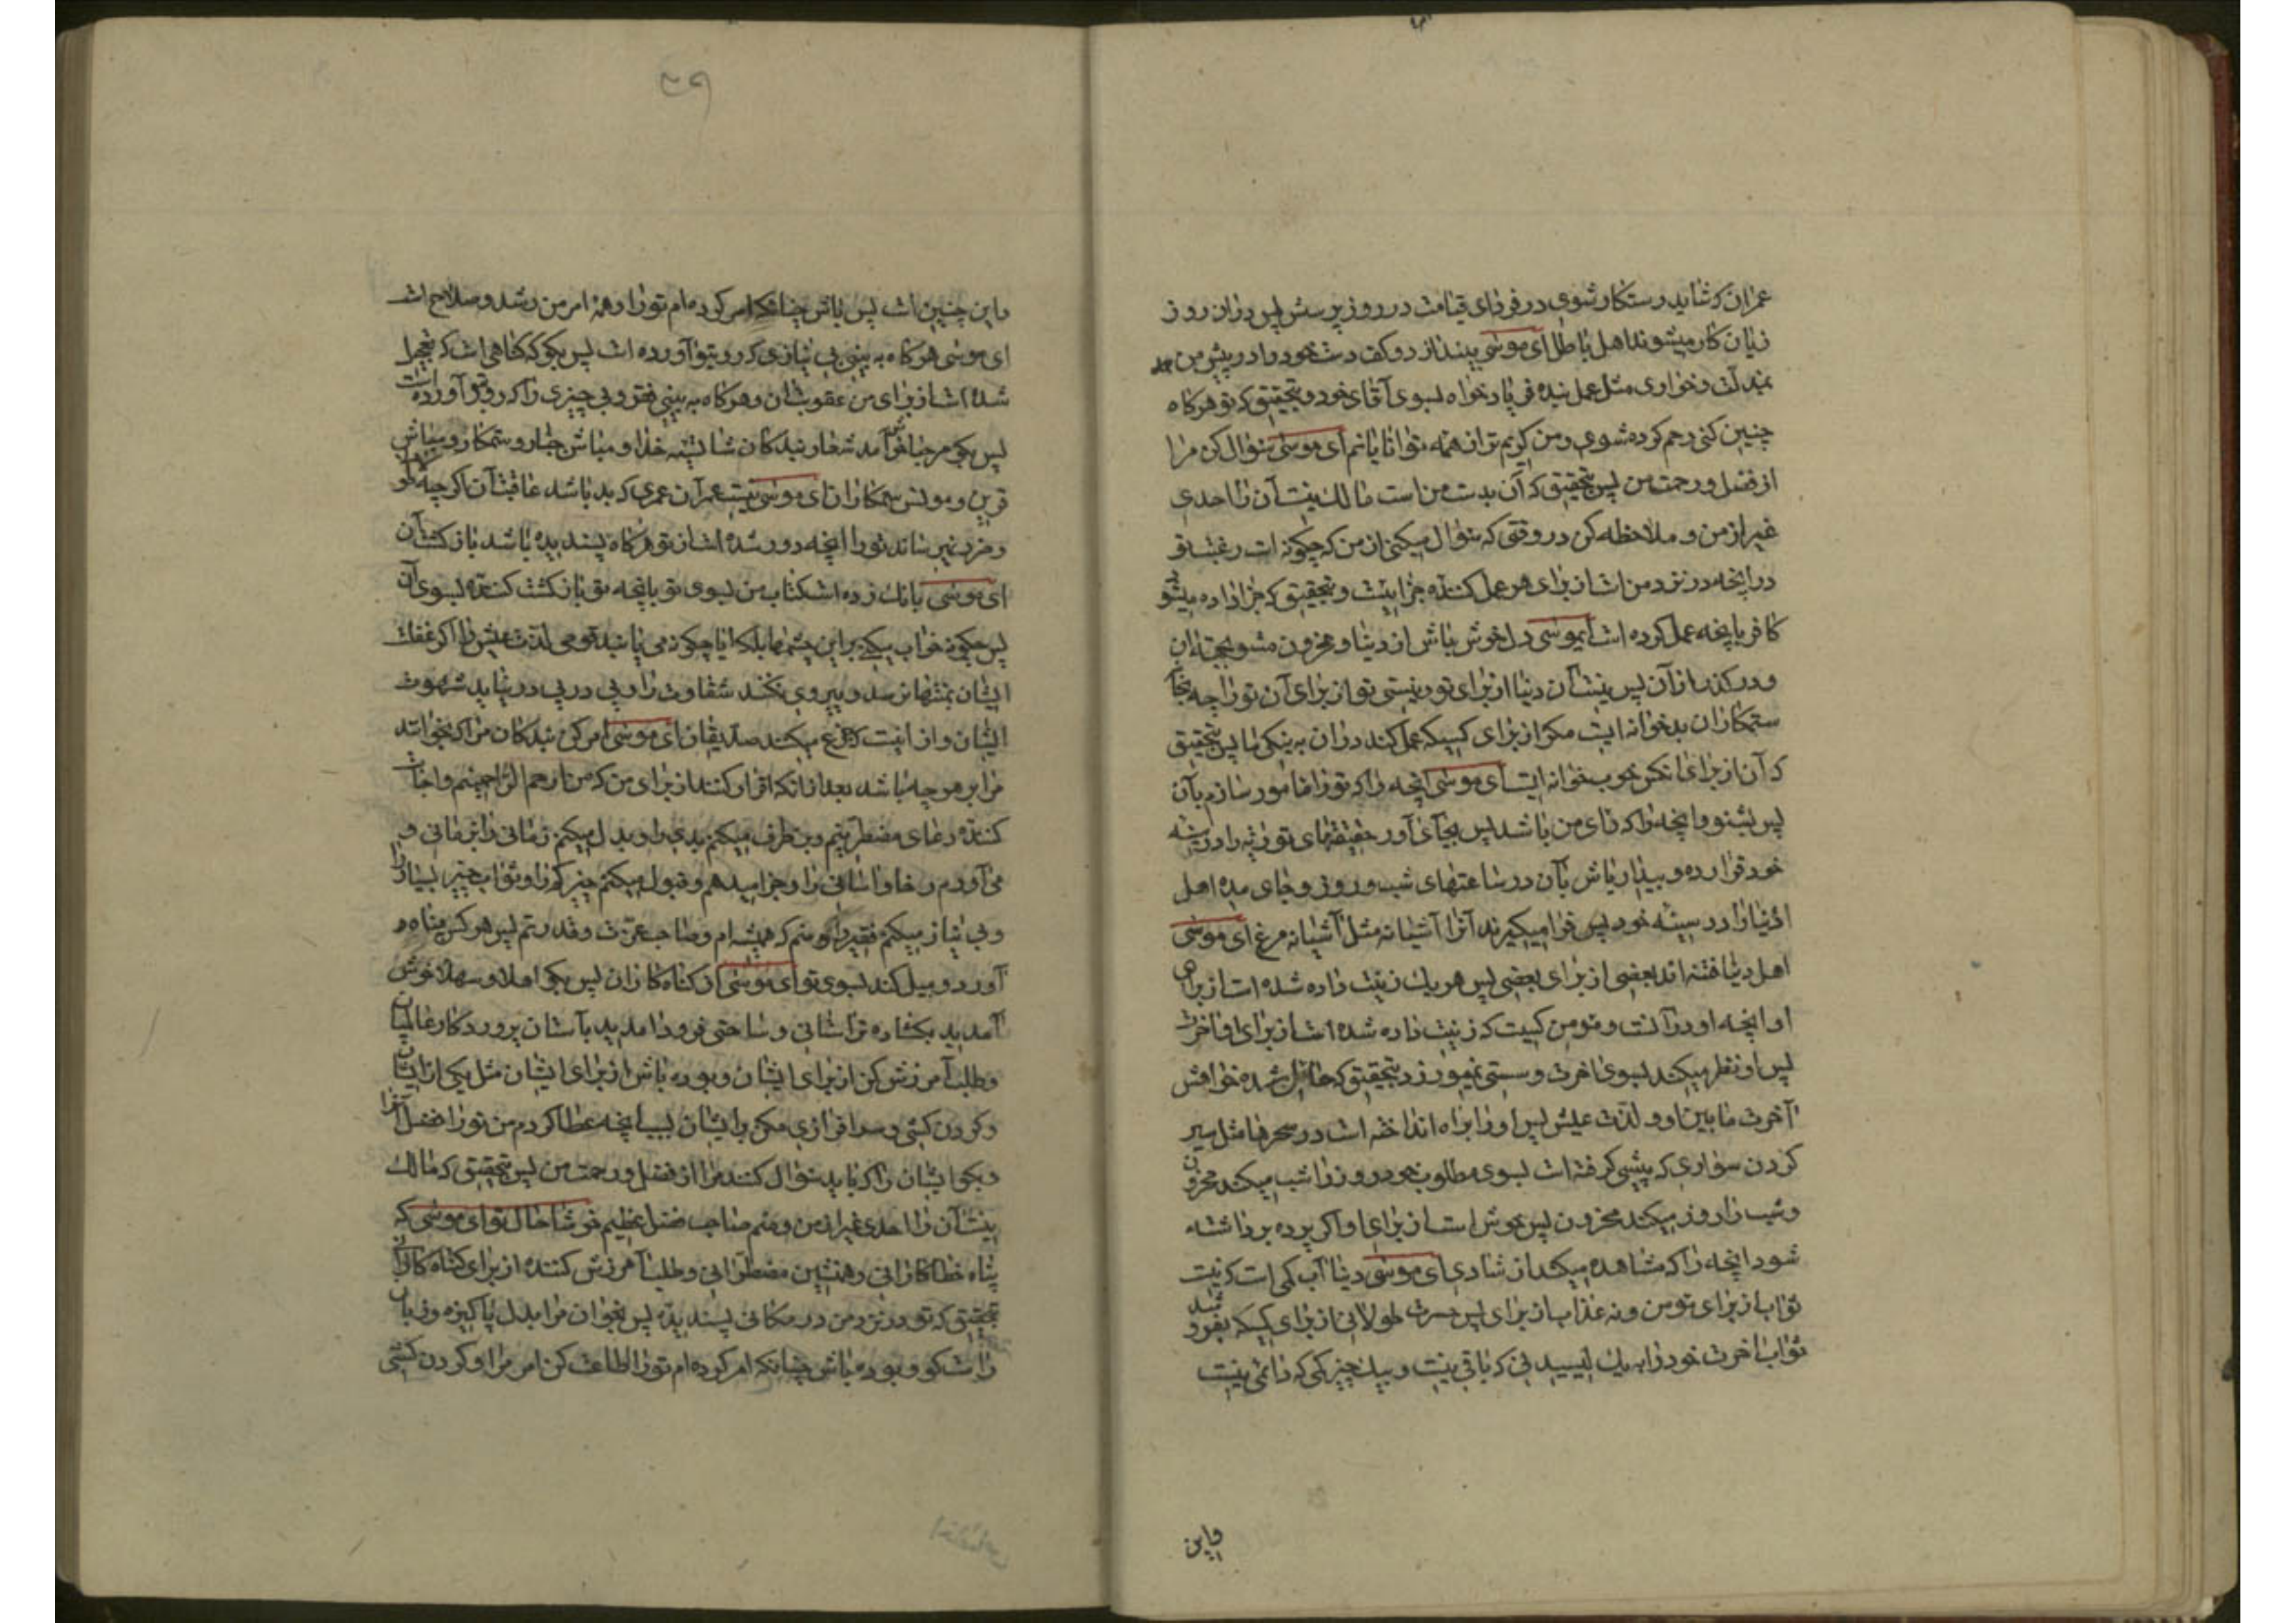 عمران که شاید رستکار شوی در فردای قیامت در روز پرسش پس دران روز
زیان کار میشوند اهل باطل ای موسی بینداز دو کف دست خود را در پیش من
بمذلت و خواری مثل عمل بنده فریاد خواه بسوی آقای خود و بتحقیق که تو هرکاه
چنین کنی رحم کرده شوی و من کریم تران همه توانایانم ای موسی سؤال کن مرا
از فضل و رحمت من پس بتحقیق که آن بدست من است مالک نیست آن را احدی
غیر از من و ملاحظه کن در وقتی که سؤال میکنی از من که چکونه است رغبت تو
در انچه در نزد من است از برای هر عمل کننده جزاییست و بتحقیق که جزا داده میشود
کافر بانچه عمل کرده است ایموسی دل خوش باش از دنیا و محزون مشو بجهة ان
و درکذر از آن پس نیست آن دنیا از برای تو و نیستی تو از برای آن تو را چه بخانه
ستمکاران بد خوانه ایست مکر از برای کسیکه عمل کند دران به نیکی ها پس بتحقیق
که آن از برای انکس خوب خوانه ایست ای موسی انچه را که تو را مامور سازم بآن
پس بشنو و انچه را که رای من باشد پس بجای آور حقیقتهای توریة را در سینه
خود قرار ده و بیدار باش بآن در ساعتهای شب و روز و جای مده اهل
دنیا را در سینه خود پس فرا میکیرند آنرا آشیانه مثل آشیانه مرغ ای موسی
اهل دنیا فتنه اند بعضی از برای بعضی پس هر یک زینت داده شده است از برای
او انچه او در آنست و مومن کسیست که زینت داده شده است از برای او آخرت
پس او نظر میکند بسوی اخرت و سستی نمیورزد بتحقیق که حائل شده خواهش
آخرت مابین او و لذت عیش پس او را براه انداخته است در سحرها مثل سیر
کردن سواری که پیشی کرفته است بسوی مطلوب خود روز را شب میکند محزون
و شب را روز میکند محزون پس خوش است از برای او اکر پرده برداشته
شود انچه را که مشاهده میکند از شادی ای موسی دنیا آب کمی است که نیست
ثواب از برای مومن و نه عذاب از برای پس حسرت طولانی از برای کسیکه بفروشد
ثواب اخرت خود را به یک لیسیدنی که باقی نیست و بیک چیز کمی که دائمی نیست
واین
واین چنین است پس باش چنانکه امر کرده ام تو را و همه امر من رشد و صلاح است
ای موسی هرکاه به بینی بی نیازی که رو بتو آورده است پس بکو که کناهی است که تعجیل
شده است از برای من عقوبت ان و هرکاه به بینی فقر و بی چیزی را که رو بتو آورده است
پس بکو مرحبا خوش آمد شعار بندکان شایسته خدا و مباش جبار و ستمکار و مباش
قرین و مونس ستمکاران ای موسی نیست عمر آن عمری که بد باشد عاقبت آن اکرچه
و ضرر نمیرساند تو را انچه دور شده است از تو هرکاه پسندیده باشد بازکشت آن
ای موسی بانک زده است کتاب من بسوی تو بانچه تو بازکشت کننده بسوی آن
پس چکونه خواب میکند براین چشمها بلکه ایا چکونه می یابند قومی لذت عیش را اکر غفلت
ایشان بمنتها نرسد و پیروی نکنند شقاوت را و پی در پی درنیاید شهوت
ایشان و از اینست که جزع میکنند صدیقان ای موسی امر کن بندکان مرا که بخوانند
مرا بر هرچه باشد بعد از انکه اقرار کنند از برای من که من ارحم الراحمینم و اجابت
کننده دعای مضطرینم و برطرف میکنم بدی را و بدل میکنم زمانی را بزمانی و
می آورم رخا و اسانی را و جزا میدهم و قبول میکنم چیز کم را و ثواب چیز بسیار را
و بی نیاز میکنم فقیر را و منم که همیشه ام و صاحب عزت و قدرتم پس هرکس پناه
آورد و میل کند بسوی تو ای موسی از کناه کاران پس بکو اهلا و سهلا خوش
آمدید بکشاده تر استانی و ساحتی فرود آمدید بآستان پروردکار عالمیان
و طلب آمرزش کن از برای ایشان و بوده باش از برای ایشان مثل یکی از ایشان
و کردن کشی و سرافرازی مکن برایشان بسبب انچه عطا کردم من تو را فضل آنرا
و بکو ایشان را که باید سؤال کنند مرا از فضل و رحمت من پس بتحقیق که مالک
نیست آن را احدی غیر از من و منم صاحب فضل عظیم خوشا حال تو ای موسی که
پناه خطاکارانی و همنشین مضطرانی و طلب آمرزش کننده از برای کناه کاران
بتحقیق که تو در نزد من در مکانی پسندیدۀ پس بخوان مرا بدل پاکیزه و زبان
راست کو و بوده باش چنانکه امر کرده ام تو را اطاعت کن امر مرا و کردن کشی